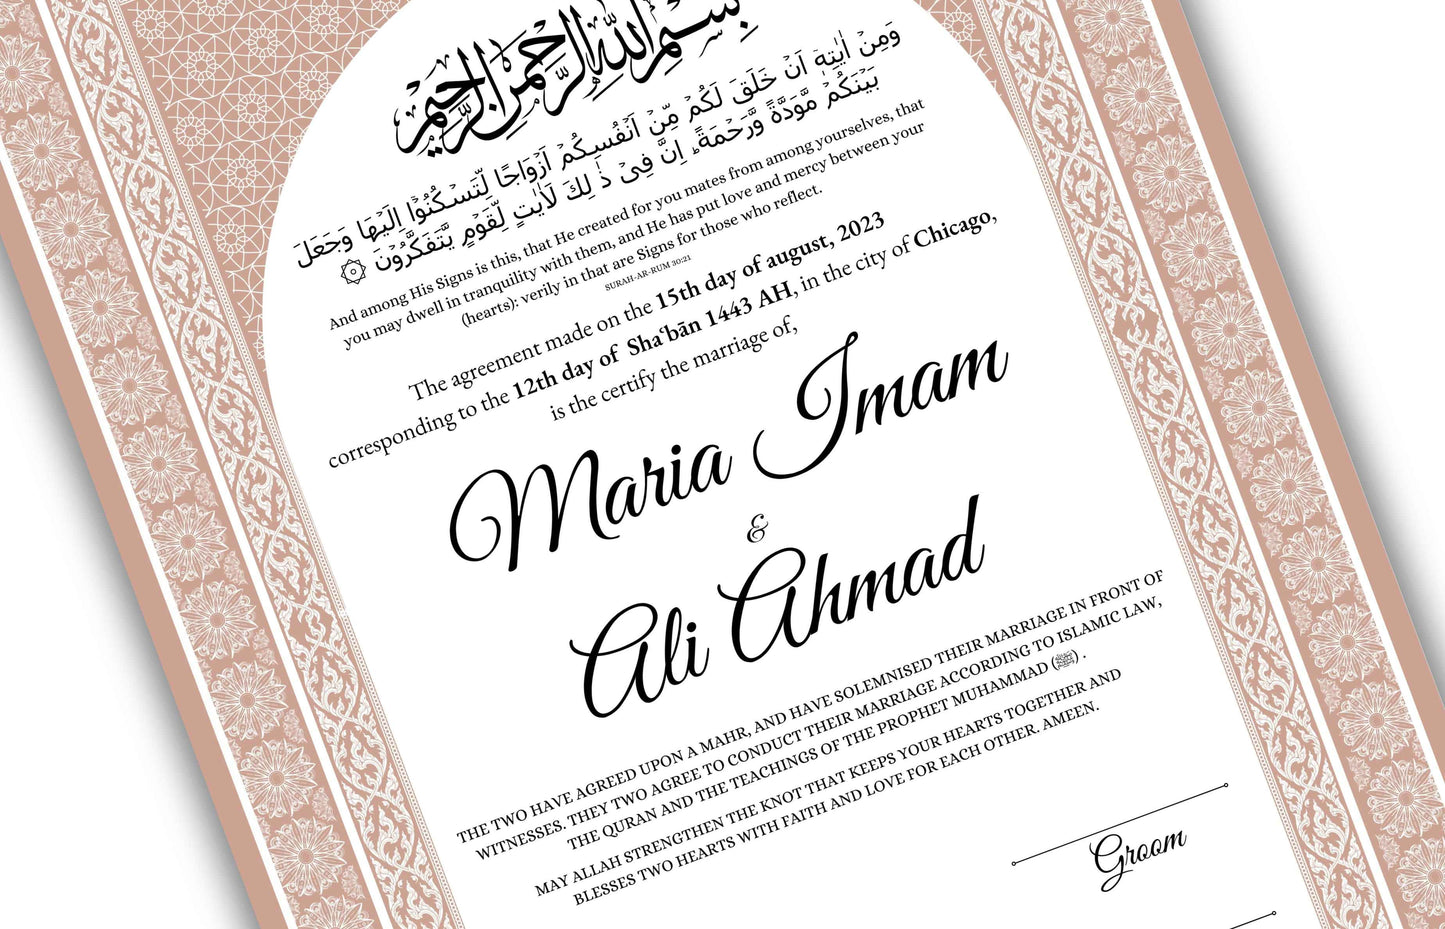 بِسْمِ اللهِ الرَّحْمٰنِ الرَّحِيْمِ
وَمِنْ اٰيٰتِهٖۤ اَنْ خَلَقَ لَكُمْ مِّنْ اَنْفُسِكُمْ اَزْوَاجًا لِّتَسْكُنُوْۤا اِلَيْهَا وَجَعَلَ
بَيْنَكُمْ مَّوَدَّةً وَّرَحْمَةً ؕ اِنَّ فِىْ ذٰ لِكَ لَاٰيٰتٍ لِّقَوْمٍ يَّتَفَكَّرُوْنَ ۞
And among His Signs is this, that He created for you mates from among yourselves, that
you may dwell in tranquility with them, and He has put love and mercy between your
(hearts): verily in that are Signs for those who reflect.
SURAH-AR-RUM 30:21
The agreement made on the 15th day of august, 2023
corresponding to the 12th day of Sha‘bān 1443 AH, in the city of Chicago,
is the certify the marriage of,
Maria Imam
&
Ali Ahmad
THE TWO HAVE AGREED UPON A MAHR, AND HAVE SOLEMNISED THEIR MARRIAGE IN FRONT OF
WITNESSES. THEY TWO AGREE TO CONDUCT THEIR MARRIAGE ACCORDING TO ISLAMIC LAW,
THE QURAN AND THE TEACHINGS OF THE PROPHET MUHAMMAD (ﷺ) .
MAY ALLAH STRENGTHEN THE KNOT THAT KEEPS YOUR HEARTS TOGETHER AND
BLESSES TWO HEARTS WITH FAITH AND LOVE FOR EACH OTHER. AMEEN.
Groom